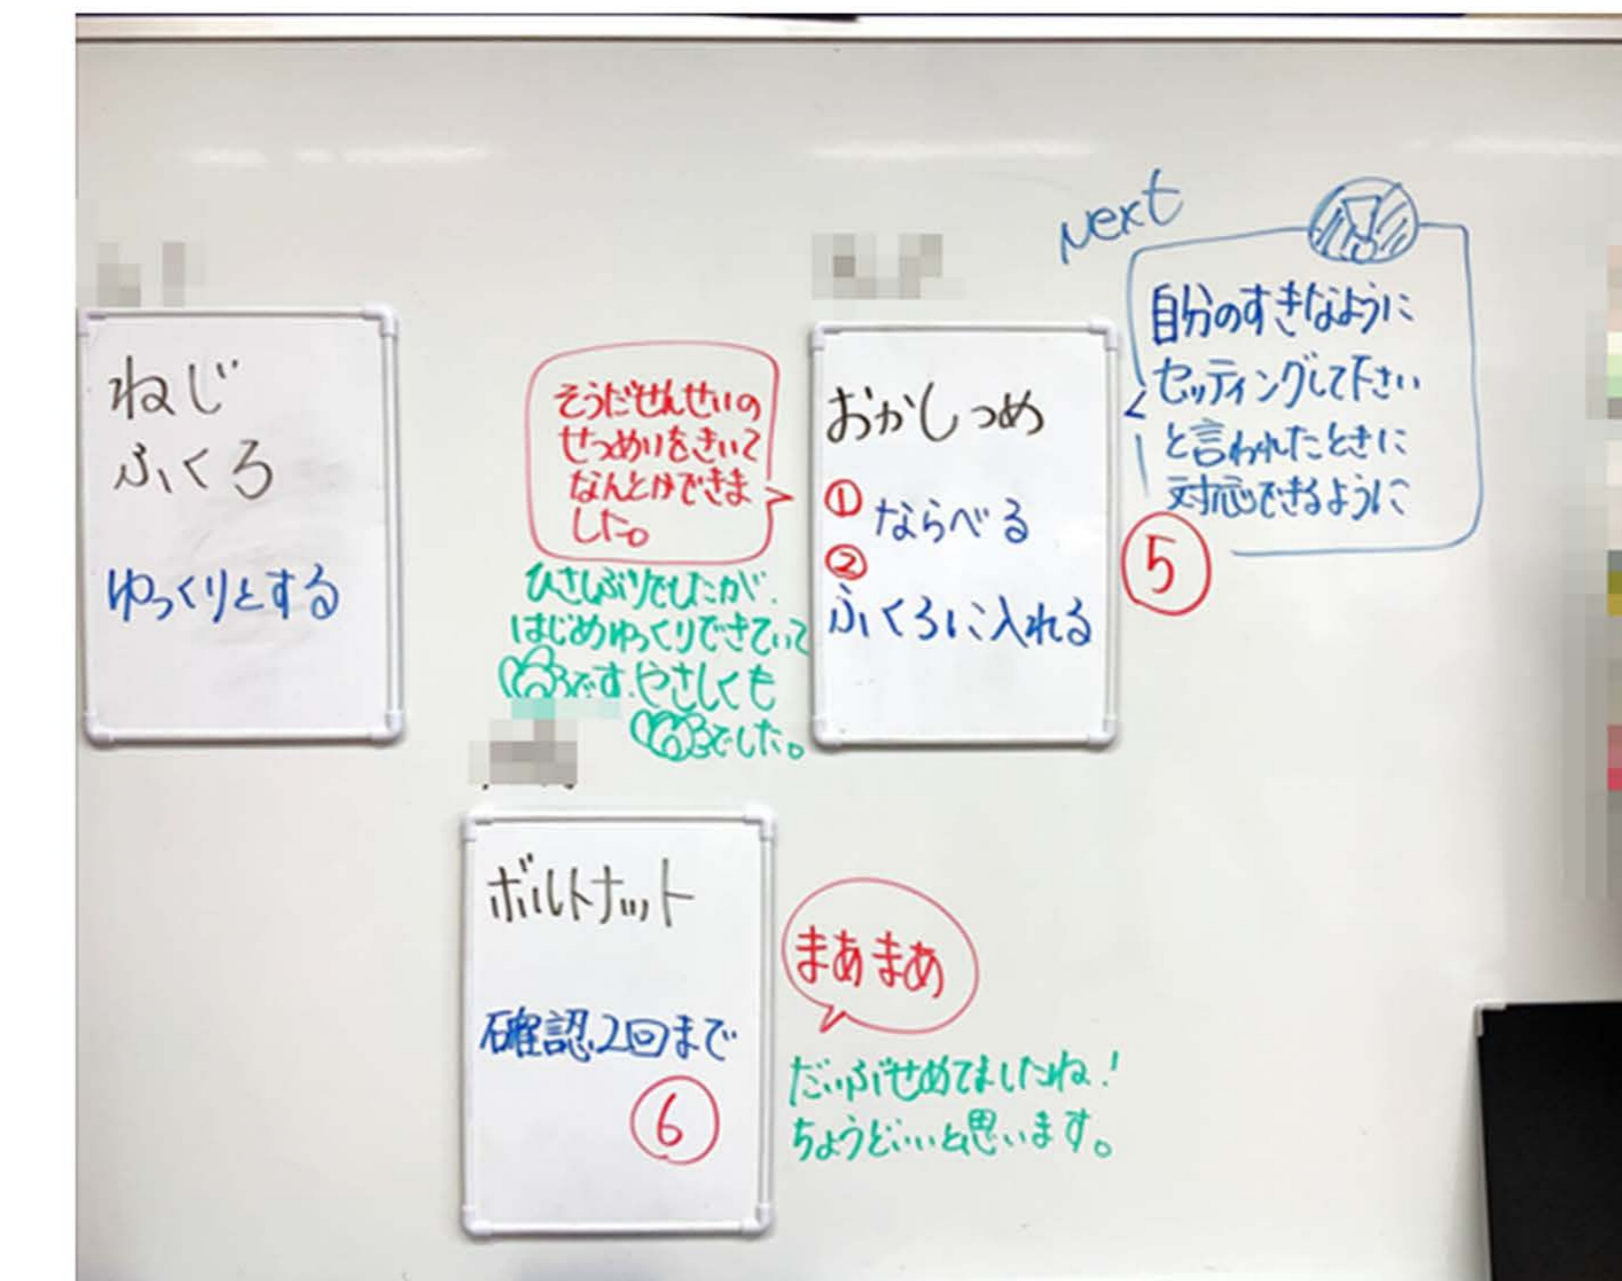 ねじ
ふくろ
ゆっくりとする
そうだせんせいの
せつめいをきいて
なんとかできま
した。
ひさしぶりでしたが、
はじめゆっくりできていて
です。やさしくも
でした。
おかしつめ
① ならべる
②
ふくろに入れる
⑤
Next
自分のすきなように
セッティングして下さい
と言われたときに
対応できるように
ボルトナット
確認2回まで
⑥
まあまあ
だいぶせめてましたね!
ちょうどいいと思います。